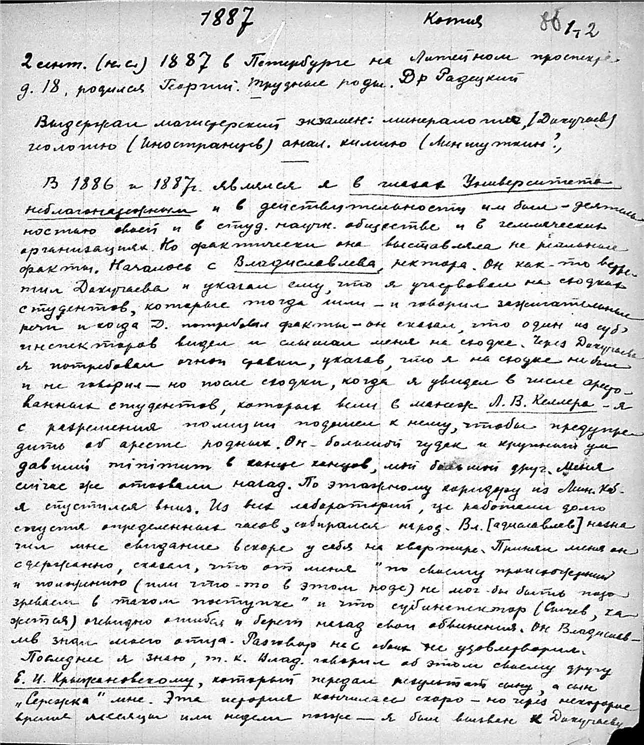 1887 Копия 86 1,2
2 сент. (н.с.) 1887 в Петербурге на Литейном проспекте,
д. 18, родился Георгий. Трудные роды. Др Радецкий
Выдержал магистерский экзамен: минералогию, (Докучаев)
геологию (Иностранцев) анал. химию (Меншуткин?)
В 1886 и 1887г. являлся я в глазах Университета
неблагонадежным и в действительности им был – деятель
ностью своей и в студ. научн. обществе и в земляческих
организациях. Но фактически она выставляла не реальные
факты. Началось с Владиславлева, ректора. Он как-то встре
тил Докучаева и указал ему, что я участвовал на сходках
студентов, которые тогда шли – и говорил зажигательные
речи и когда Д. потребовал факты – он сказал, что один из суб
инспекторов видел и слышал меня на сходке. Через Докучаева
я потребовал очной ставки, указав, что я на сходке не был
и не говорил – но после сходки, когда я увидел в числе аресто
ванных студентов, которых вели в манеж Л. В. Келлера – я
с разрешения полиции подошел к нему, чтобы предупре
дить об аресте родных. Он – большой чудак и крупный
давший в конце концов, мой большой друг. Меня
сейчас же отозвали назад. По этажному коридору из Мин. каб.
я спустился вниз. Из всех лабораторий, где работали долго
спустя определенных часов, собирался народ. Вл.[адиславлев] назна
чил мне свидание вскоре у себя на квартире. Принял меня он
сдержанно, сказал, что от меня "по своему происхождению
и положению (или что-то в этом роде) не мог бы быть подо
зреваем в таком поступке" и что субинспектор (Сычев, ка
жется) очевидно ошибся и берет назад свои обвинения. Он Владислав-
лев знал моего отца. Разговор нас обоих не удовлетворил.
Последнее я знаю, т. к. Влад. говорил об этом своему другу
Е. И. Крыжановскому, который передал результат сыну, а сын
"Сережка" мне. Эта история кончилась скоро – но через некоторое
время месяцы или недели позже – я был вызван к Докучаеву